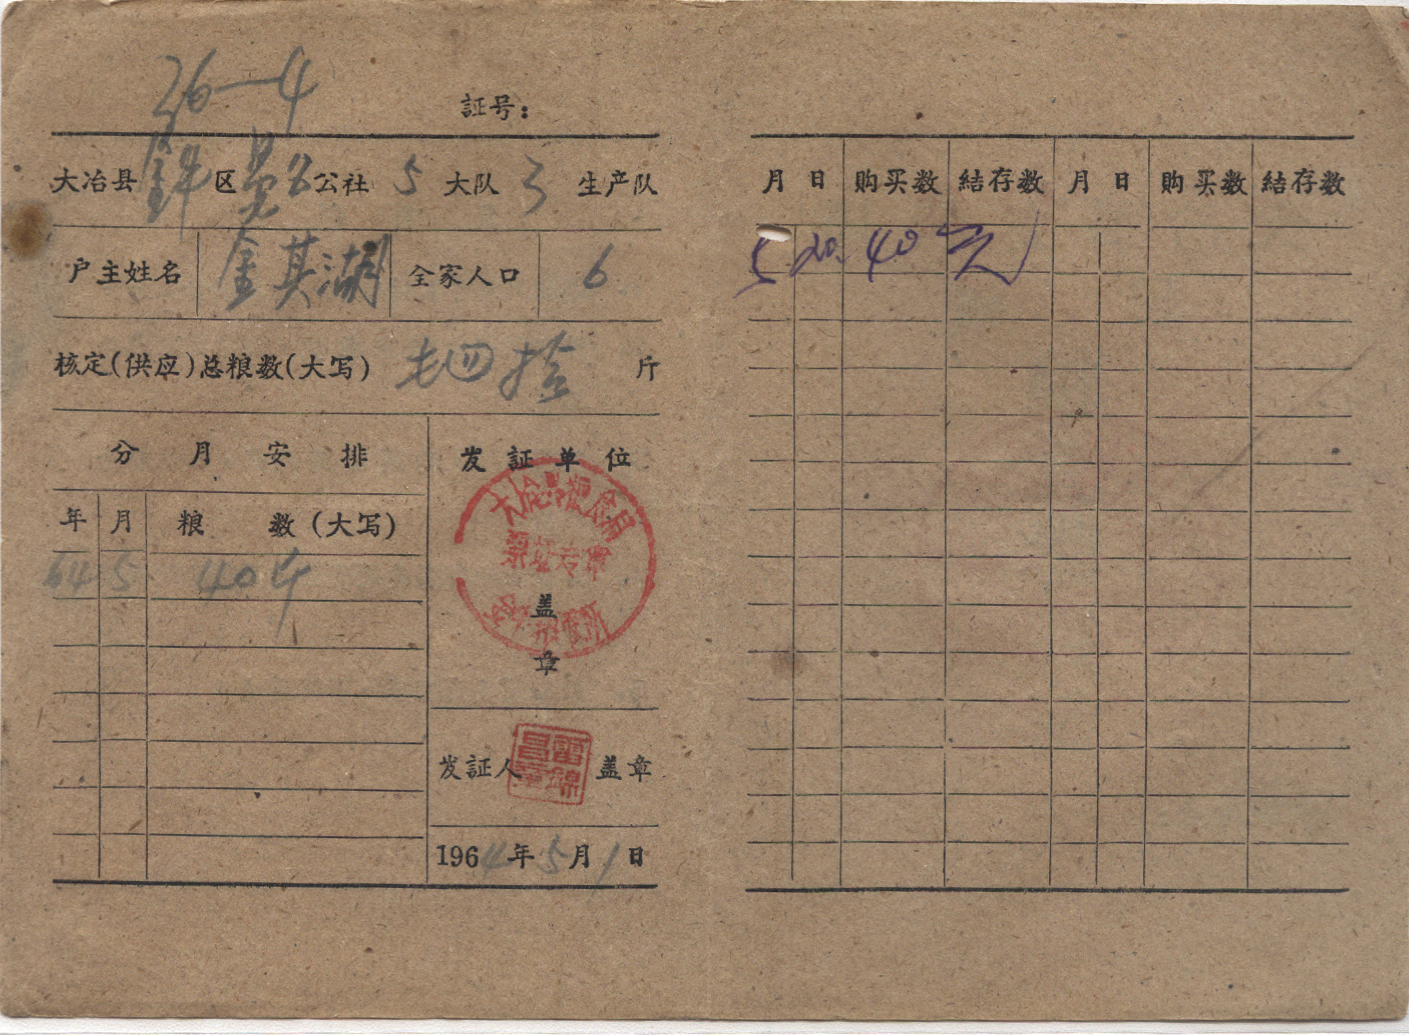 36-4
証号：
大冶县 区 公社 5 大队 3 生产队
户主姓名 金其湖 全家人口 6
核定(供应)总粮数(大写) 四拾 斤
分月安排
年 月 粮数(大写)
64 5 40斤
发証单位
大冶县粮食局
盖
章
发証人 盖章
1964年5月1日
月 日 购买数 結存数 月 日 购买数 結存数
5 20 40